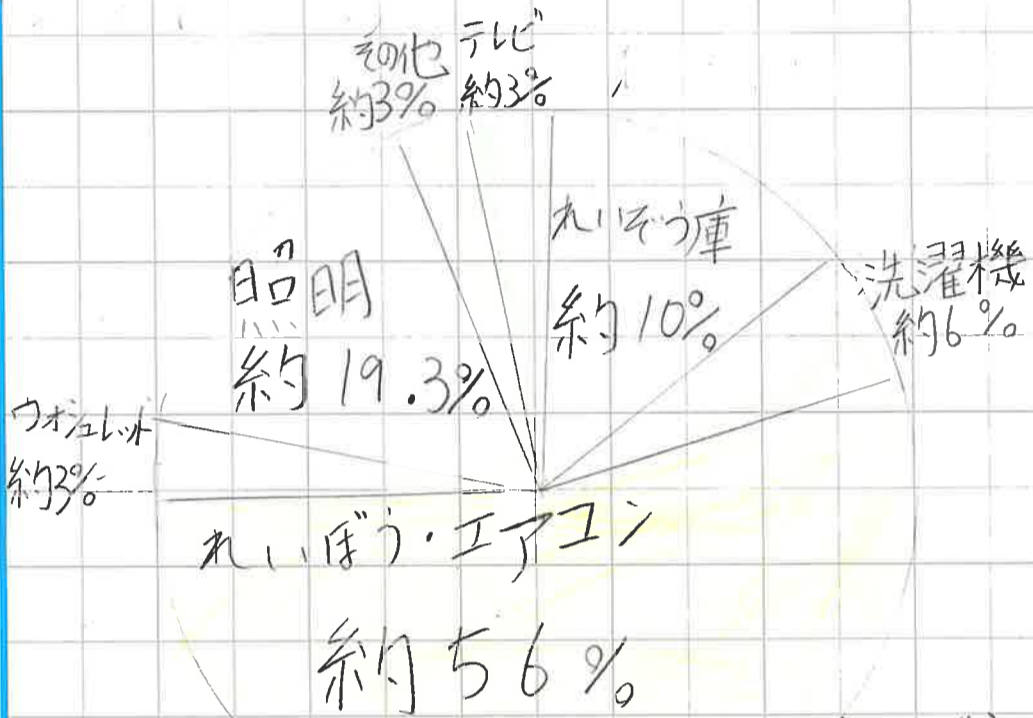 その他
約3%
テレビ
約3%
れいぞう庫
約10%
洗濯機
約6%
照明
約19.3%
ウオシュレット
約3%
れいぼう・エアコン
約56%